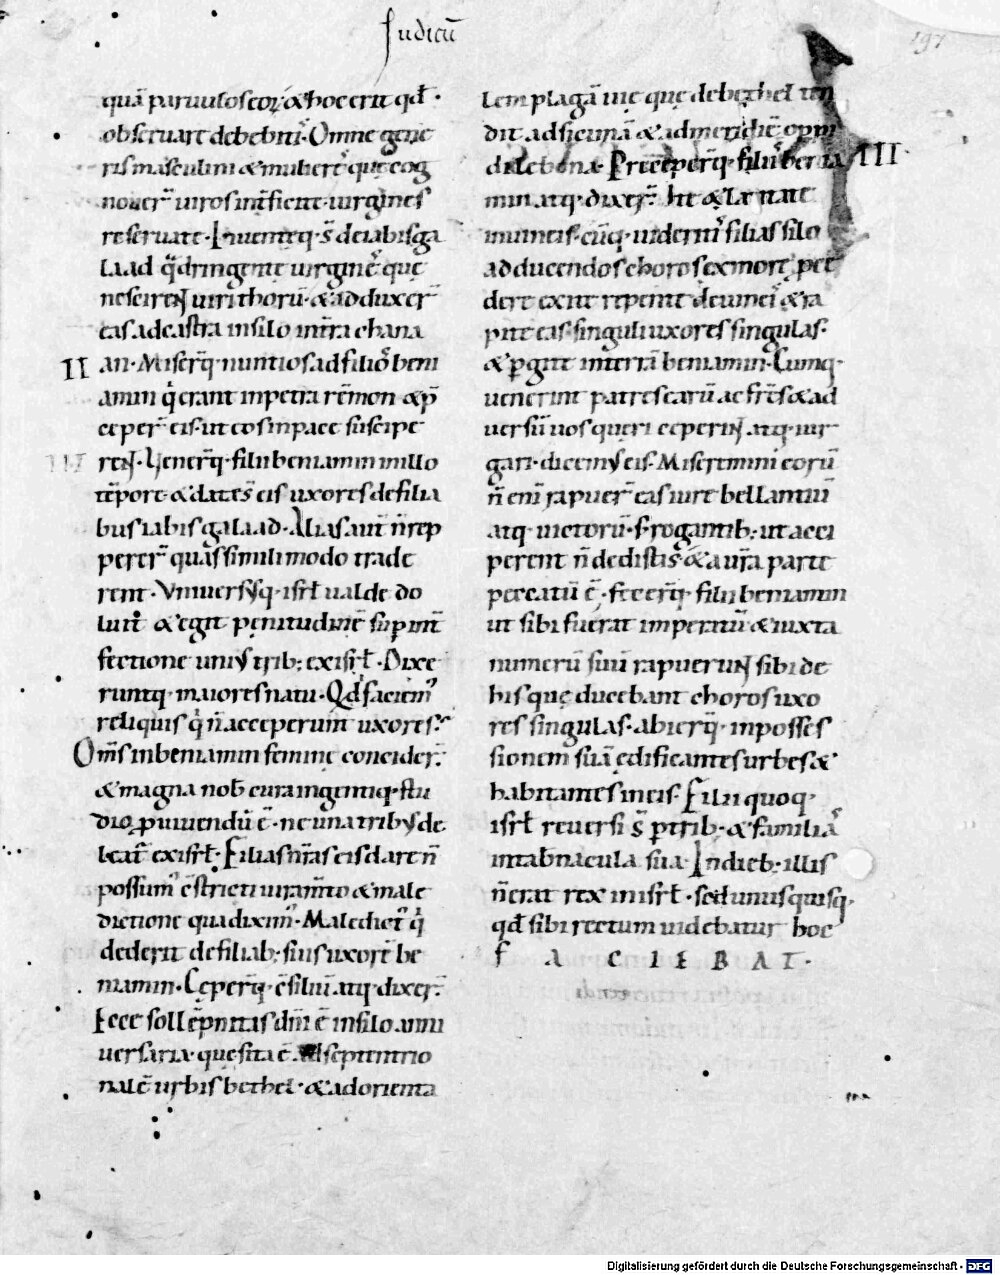 Judicū
197
quā paruulos eoꝝ & hoc erit qđ ·
obseruare debebitis̓ · Omne gene
ris masculini & mulieres̓ que cog
nouer̄ uiros interficite · uirgines
reseruate · Inuenteq· s̄ de iabis ga
laad q̈dringente uirgines̓ que
nescierunt uiri thorū · & adduxer̄
eas ad castra in silo in tr̄a chana
II
an · Miserq̄· nuntios ad filios̓ beni
amin q̇ erant in petra remmon & p̄
ceper̄ eis · ut eos in pace suscipe
III
rent · Uenerq̄· filii beniamin in illo
tēpore & date s̄ eis uxores de filia
bus iabis galaad · Alias aut̄ n̄ rep
perer̄ quas simili modo trade
rent · Vniuersusq· isrł ualde do
luit & egit penitudinē sup int̄
fectione unius trib; ex isrł · Dixe
runtq· maiores natu · Qđ faciem᾿
reliquis q̇ n̄ acceperunt uxores?
Om̄s in beniamin femine concider̄ ·
& magna nob̄ cura ingentiq· stu
dio ꝓuidendū ē · ne una tribus de
leat̄ ex isrł · Filias nr̄as eis dare n̄
possum᾿ cstricti iuram̄to & male
dictione qua dixim᾿ · Maledict᾿ q̇
dederit de filiab; suis uxorē be
niamin · Ceperq̄· csiliū atq· dixer̄ ·
Ecce sollēpnitas dn̄i ē in silo anni
uersaria · que sita ē ad septentrio
nalē urbis bethel · & ad orienta
lem plagā uie que de bethel ten
dit ad sicimā & ad meridiē opi
di lebona · Preceperq̄· filiis̓ benia
III
min atq· dixer̄ · Ite & latitate
in uineis · cūq· uideritis̓ filias silo
ad ducendos choros ex more pce
dere exite repente de uineis̓ & ra
pite eas · singuli uxores singulas ·
& ꝑgite in terrā beniamin · Cumq·
uenerint patres earū ac fr̄es & ad
uersū uos queri ceperint atq· iur
gari · dicemus eis · Miseremini eorū
n̄ enī rapuer̄ eas iure bellantiū
atq· uictorū · s; rogantib; ut acci
perent n̄ dedistis · & a ur̄a parte
peccatū ē · fecerq̄· filii beniamin
ut sibi fuerat imperatū & iuxta
numerū suū rapuerunt sibi de
his que ducebant choros uxo
res singulas · abierq̄· in posses
sionem suā edificantes urbes &
habitantes in eis · Filii quoq·
isrł reuersi s̄ p trib; & familias̓
in tab̄nacula sua · In dieb; illis
n̄ erat rex in isrł · sed unusquisq·
qđ sibi rectum uidebatur hoc
F A C I E B A T ·
Digitalisierung gefördert durch die Deutsche Forschungsgemeinschaft - DFG